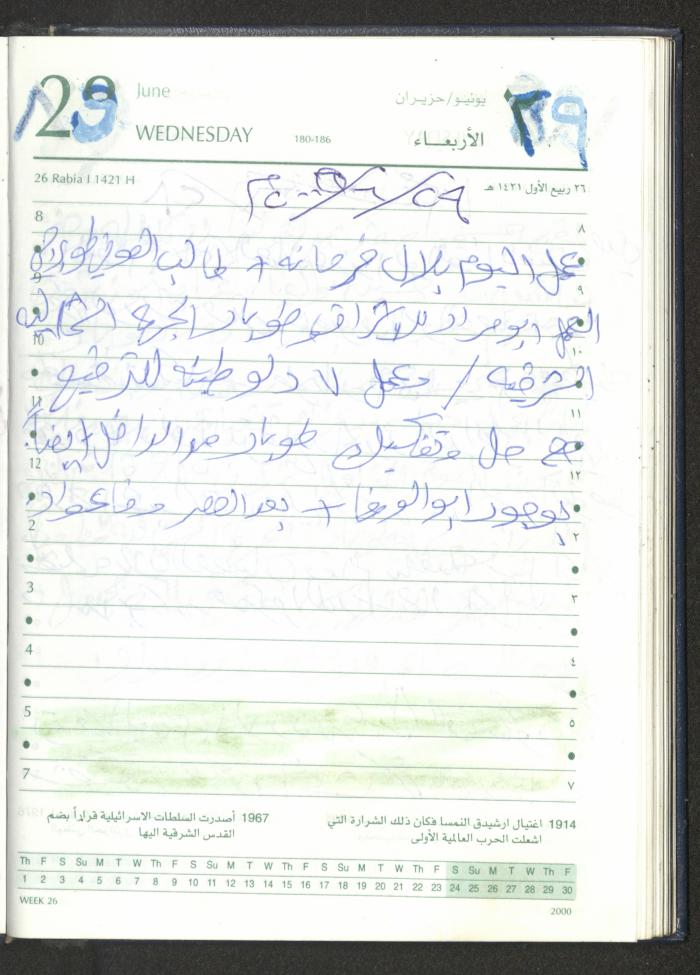 29 June
WEDNESDAY 180-186
يونيو/حزيران ٢٩
الأربعـــاء
26 Rabia I 1421 H
٢٦ ربيع الأول ١٤٢١ هـ
8 ٨
عمل اليوم بلال فرحانه + طالب
9 ٩
العمل ابو مراد للاشراف طوبار الجهة الشماليه
10 ١٠
الشرقيه / وعمل ٧ دلو طينه للترقيع
11 ١١
مع حل وتفكيك طوبار من الداخل ايضاً
12 ١٢
بوجود ابو الوفا + بعد العصر
2 ٢
3 ٣
4 ٤
5 ٥
7 ٧
1914 اغتيال ارشيدق النمسا فكان ذلك الشرارة التي
اشعلت الحرب العالمية الأولى
1967 أصدرت السلطات الاسرائيلية قراراً بضم
القدس الشرقية اليها
Th F S Su M T W Th F S Su M T W Th F S Su M T W Th F S Su M T W Th F
1 2 3 4 5 6 7 8 9 10 11 12 13 14 15 16 17 18 19 20 21 22 23 24 25 26 27 28 29 30
WEEK 26
2000